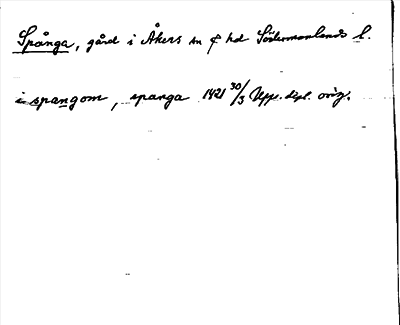 Spånga, gård i Åkers sn o hd Södermanlands l.
i spangom, spanga 1421 30/3 Upps. dipl. orig.